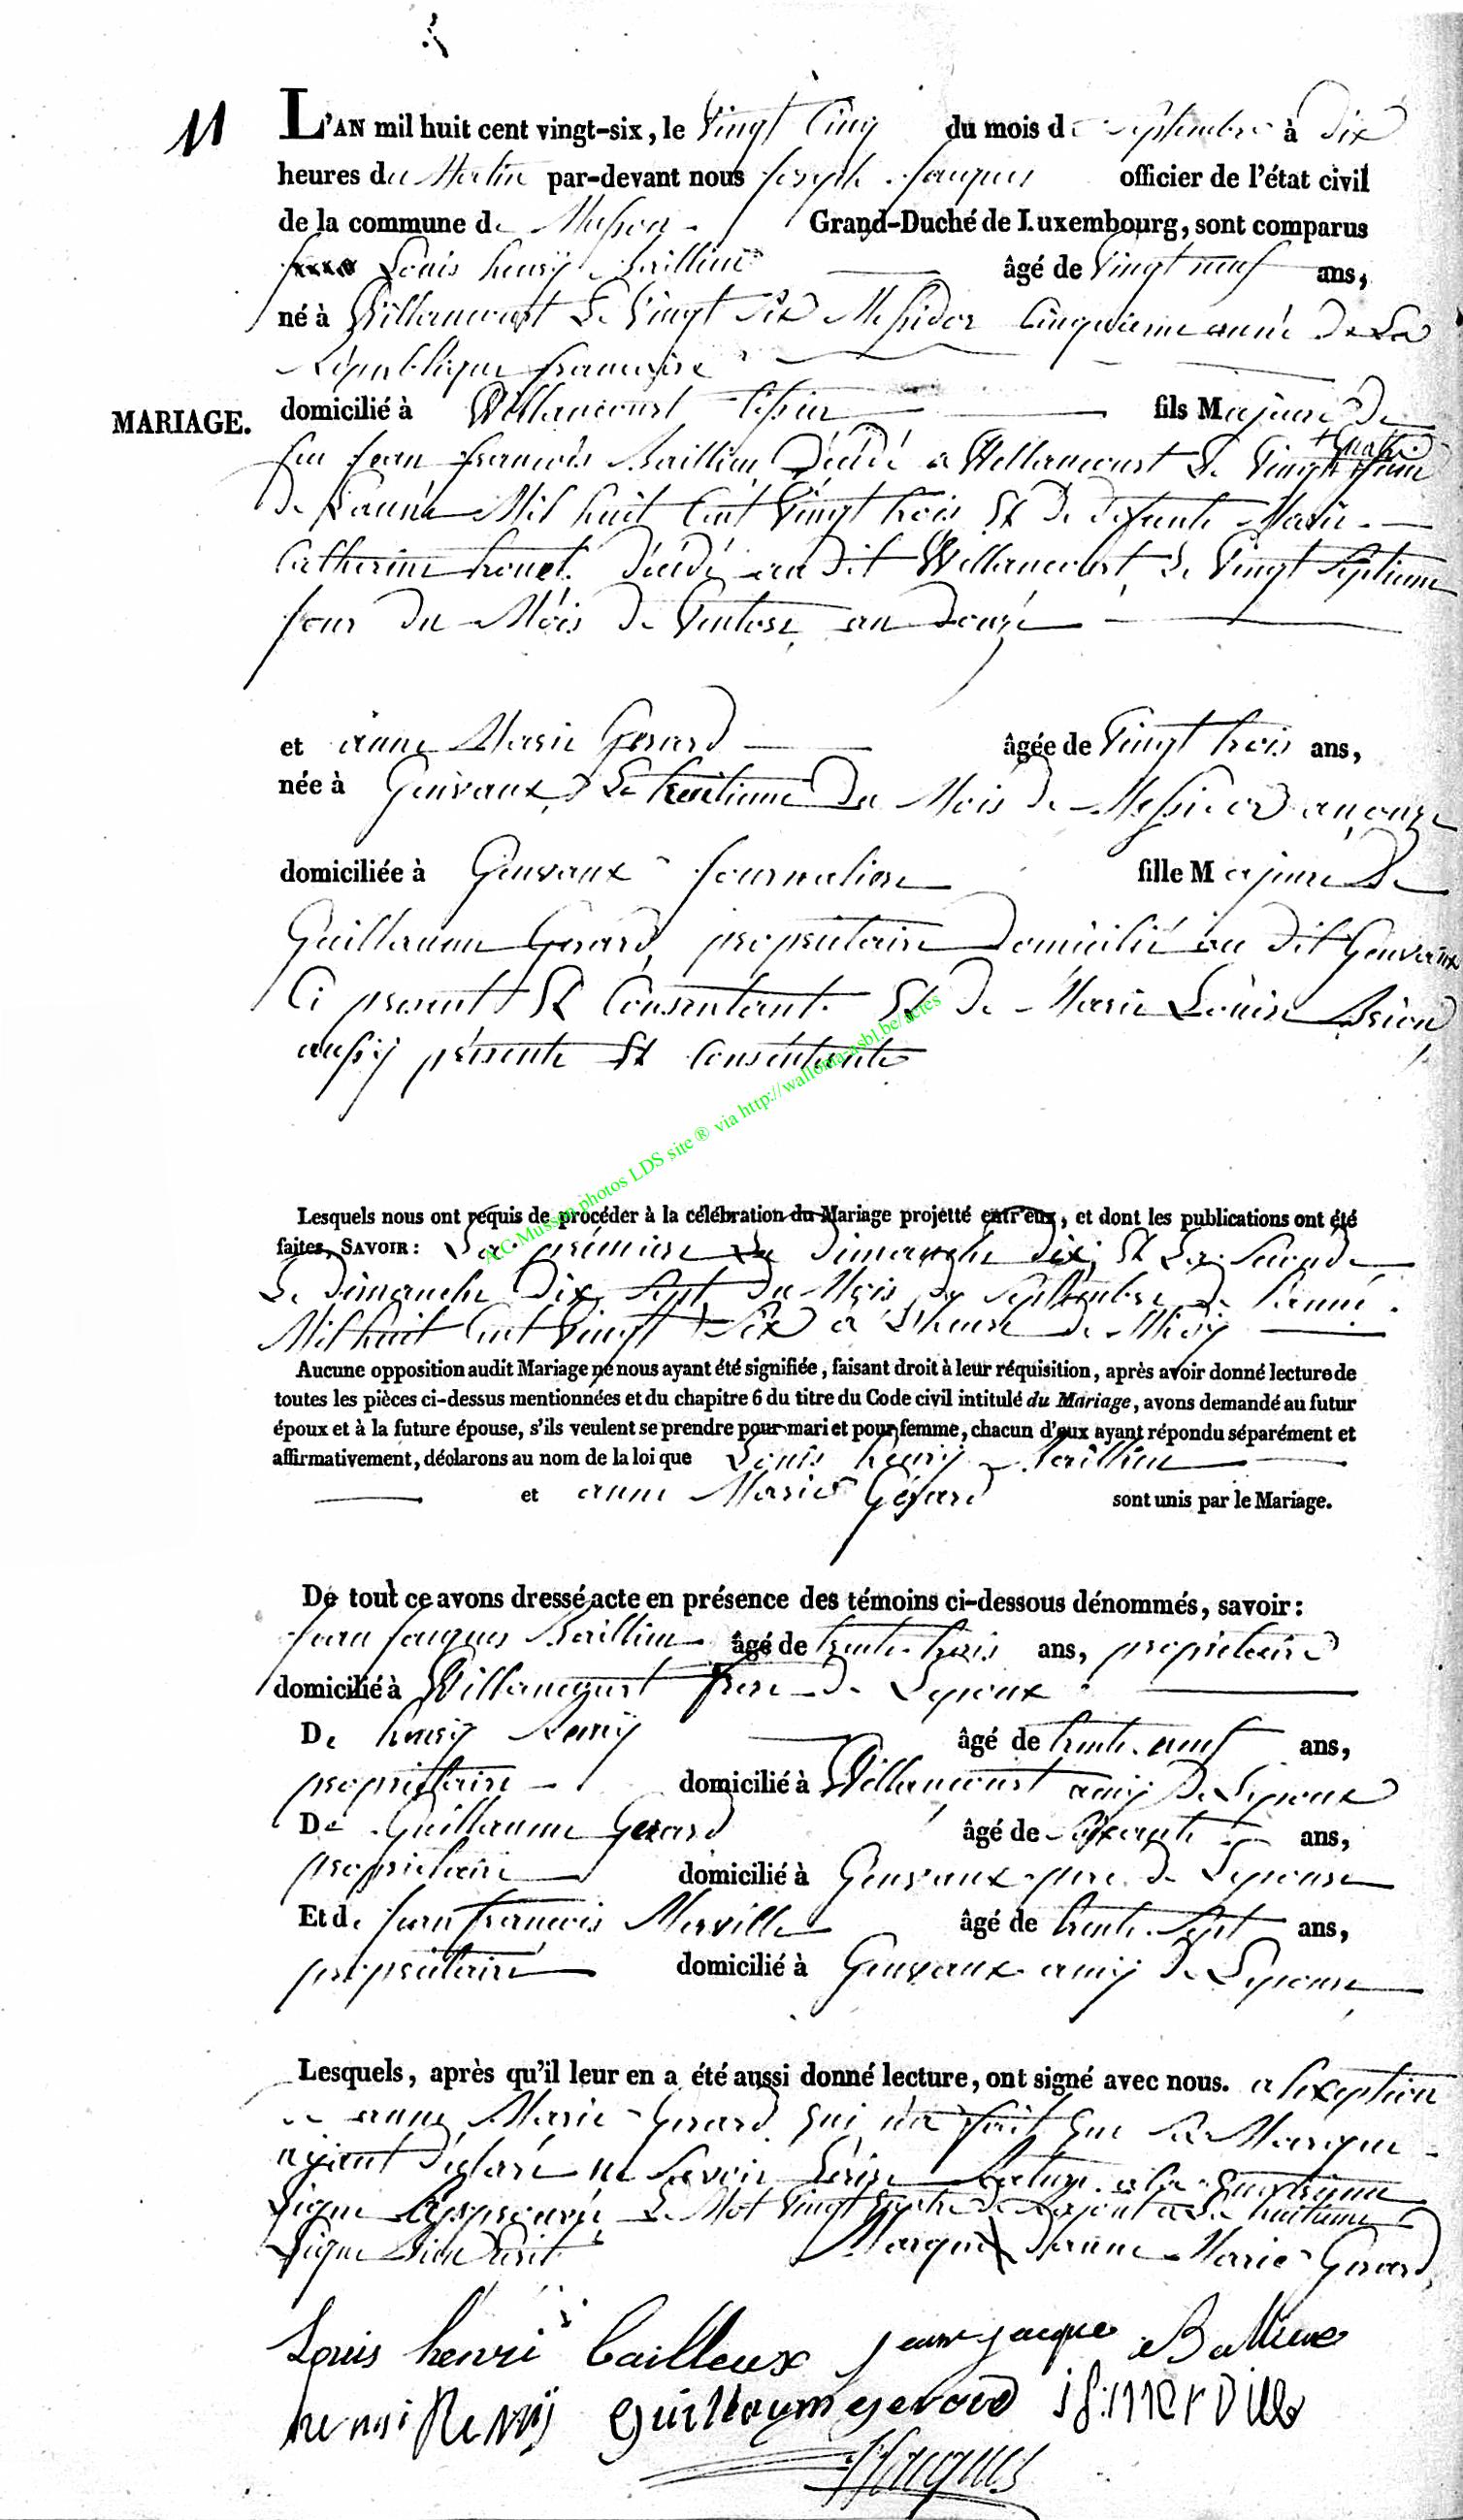 11
L'AN mil huit cent vingt-six, le Vingt Cinq du mois de Septembre à dix
heures du Matin par-devant nous Joseph Jacques officier de l'état civil
de la commune de Musson Grand-Duché de Luxembourg, sont comparus
Louis henrÿ Baillieux âgé de Vingt neuf ans,
né à Willancourt Le Vingt Six Messidor Cinquieme année De La
Républlique francaise
MARIAGE.
domicilié à Willancourt fils Majeure De
feu Jean francois Baillieu Décédé a Willancourt Le Vingt quatre
De L'année Mil huit Cent Vingt trois Et De defunte Marie
Catherine Décédé au Dit Willancourt Le Vingt Septieme
Jour Du Mois De Ventose an Douze
et anne Marie Gerard âgée de Vingt trois ans,
née à Genvaux Le Du Mois De Messidor an onze
domiciliée à Genvaux Journaliere fille Majeure De
Guillaume Gerard, propriétaire Domicilié au Dit Genvaux
Ci present Et Consentant Et De Marie Louise Brion
aussÿ présente Et Consentante
A.C Musson photos LDS site ® via http://wallonia-asbl.be/actes
Lesquels nous ont requis de procéder à la célébration du Mariage projetté entr'eux, et dont les publications ont été
faites, SAVOIR : La premiere Le Dimanche Dix, Et La Seconde
Le Dimanche Dix Sept Du Mois De Septembre De L'année
Mil huit Cent Vingt Six a L'heure De Midÿ
Aucune opposition audit Mariage ne nous ayant été signifiée, faisant droit à leur réquisition, après avoir donné lecture de
toutes les pièces ci-dessus mentionnées et du chapitre 6 du titre du Code civil intitulé du Mariage, avons demandé au futur
époux et à la future épouse, s'ils veulent se prendre pour mari et pour femme, chacun d'eux ayant répondu séparément et
affirmativement, déclarons au nom de la loi que Louis henrÿ Baillieu
et anne Marie Gérard sont unis par le Mariage.
De tout ce avons dressé acte en présence des témoins ci-dessous dénommés, savoir :
Jean Jacques Baillieu âgé de trente trois ans, propriétaire
domicilié à Willancourt frere De Lepoux
De henrÿ Remÿ âgé de trente neuf ans,
propriétaire domicilié à Willancourt amÿ De Lepoux
De Guillaume Gerard âgé de Soixante ans,
propriétaire domicilié à Genvaux pere De Lepouse
Et de Jean francois Merville âgé de trente Sept ans,
propriétaire domicilié à Genvaux amÿ De Lepouse
Lesquels, après qu'il leur en a été aussi donné lecture, ont signé avec nous. a Lexeption
De anne Marie Gerard qui n'a fait que Sa Marque
aÿant Déclaré ne Savoir Ecrire a La
ligne Approuvé Le Mot Vingt quatre ajouté a La huitieme
Ligne
Marque D'anne Marie Gerard
Louis henri Bailleux jean jacque Ballieux
henri Remÿ Guillaume gerard jf merville
JJacques